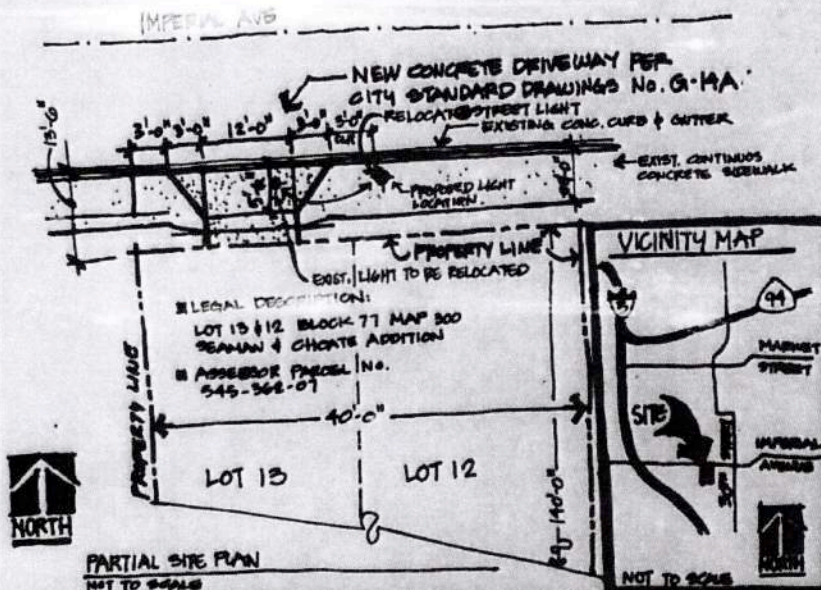 IMPERIAL AVE
NEW CONCRETE DRIVEWAY PER
CITY STANDARD DRAWINGS No. G-14A.
RELOCATE STREET LIGHT
EXISTING CONC. CURB & GUTTER
13'-0"
3'-0" 3'-0" 12'-0" 3'-0" 3'-0"
EXIST. CONTINUOS
CONCRETE SIDEWALK
PROPOSED LIGHT
LOCATION
PROPERTY LINE
EXIST. LIGHT TO BE RELOCATED
LEGAL DESCRIPTION:
LOT 13 & 12 BLOCK 77 MAP 300
SEAMAN & CHOATE ADDITION
ASSESSOR PARCEL No.
545-362-07
PROPERTY LINE
40'-0"
LOT 13
LOT 12
140'-0"
NORTH
PARTIAL SITE PLAN
NOT TO SCALE
VICINITY MAP
94
MARKET
STREET
SITE
30TH STREET
IMPERIAL
AVENUE
NORTH
NOT TO SCALE